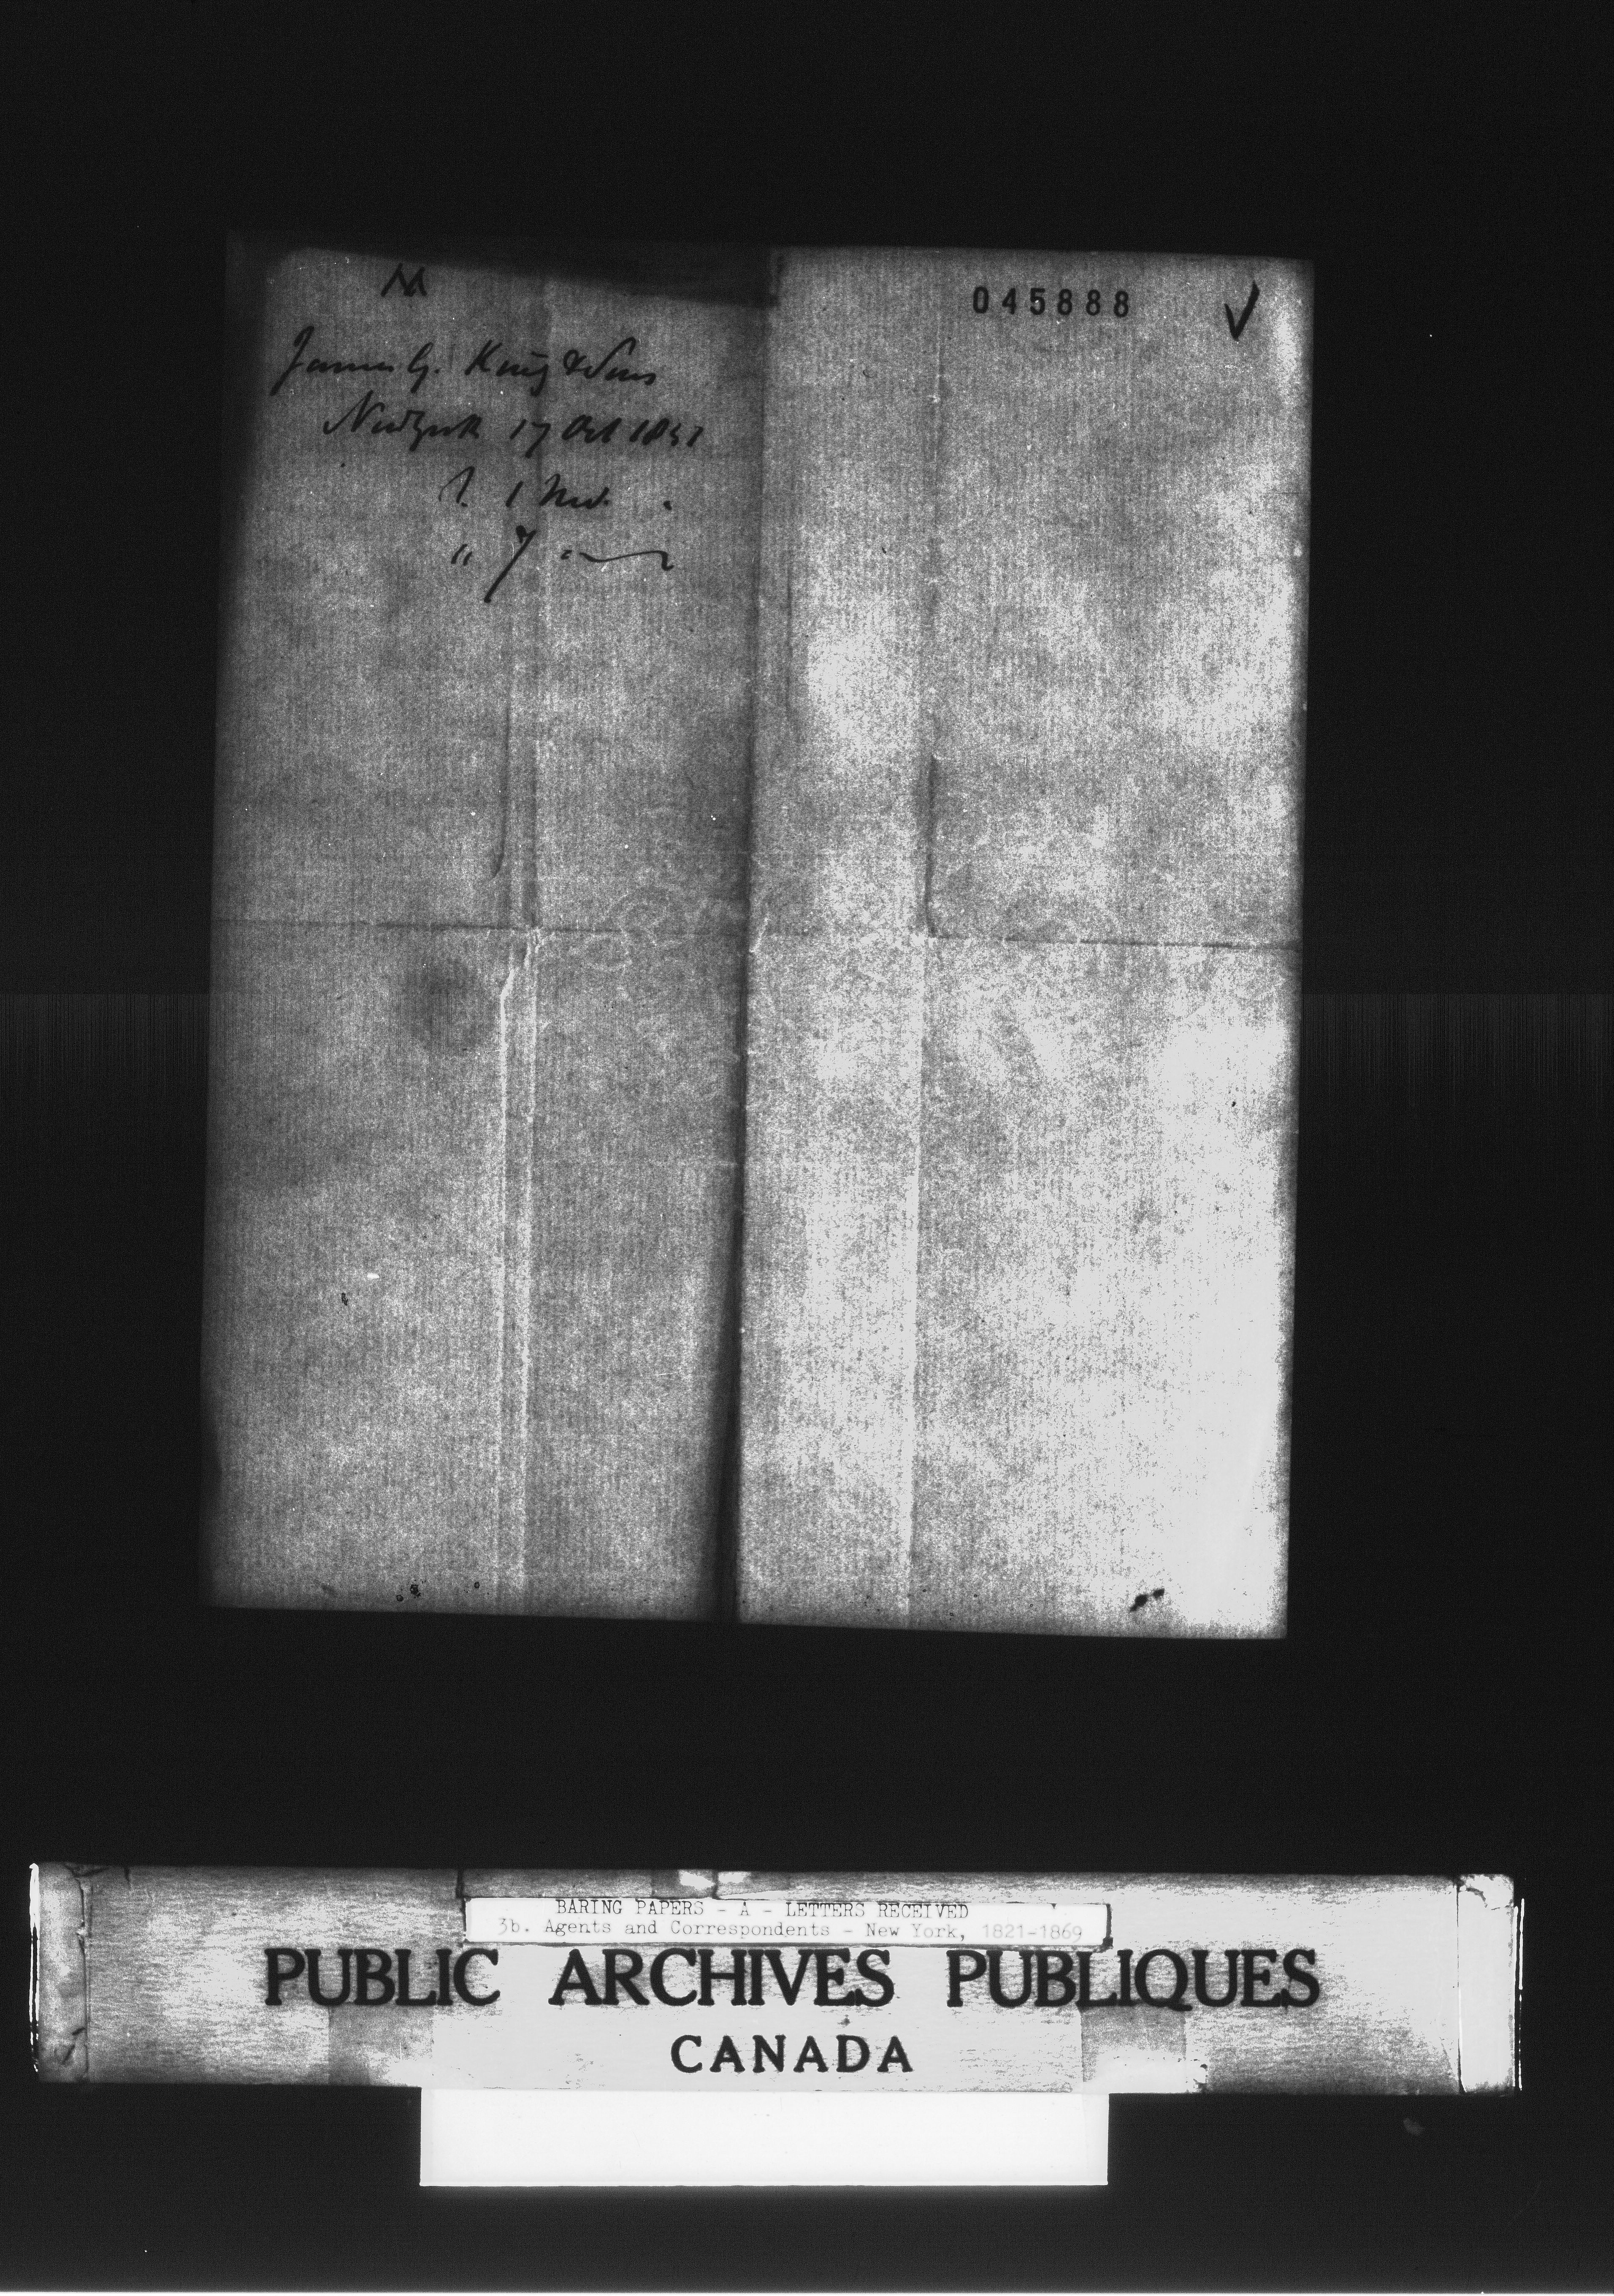 James G. King & Sons
NewYork 17 Oct 1851
1 Nov.
" 7 "
045888
BARING PAPERS - A - LETTERS RECEIVED
3b. Agents and Correspondents - New York, 1821-1869
PUBLIC ARCHIVES PUBLIQUES
CANADA